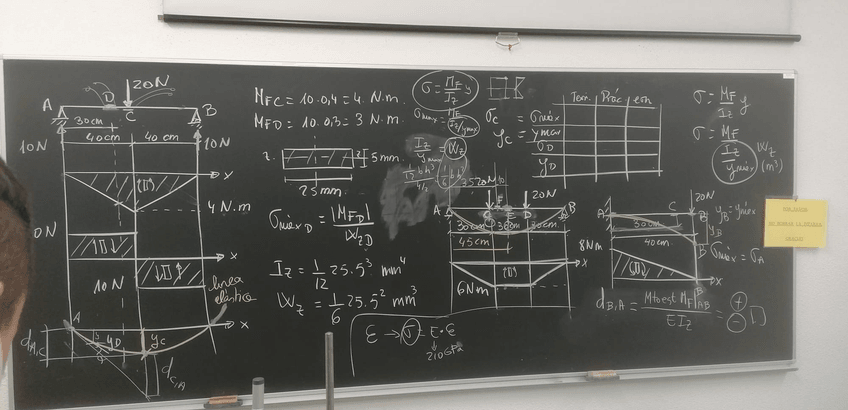 20N
A
D
C
B
30cm
40cm
40 cm
10N
10N
x
4 N.m
x
10N
linea
elástica
A
x
yD
yC
dA,C
dC,A
MFC = 10.0,4 = 4 N.m.
MFD = 10.0,3 = 3 N.m
z.
5mm
25mm
σmáxD = |MFD| / WzD
Iz = 1/12 25.5³ mm⁴
Wz = 1/6 25.5² mm³
σ = MF/Iz y
σmax = MF / Iz/ymax
Iz/ymax = Wz
σC = σmáx
yC = ymax
σD
yD
Teor.
Prác
error
20N
A
C
D
B
30cm
30cm
45cm
6Nm
x
ε → σ = E.ε
210GPa
σ = MF/Iz y
σ = MF / Iz/ymáx
Wz
(m³)
20N
A
C
B
yB = ymáx
yB
30cm
40cm
8Nm
σmáx = σA
x
B
dB,A = Mto est MF|AB / EIz = + −